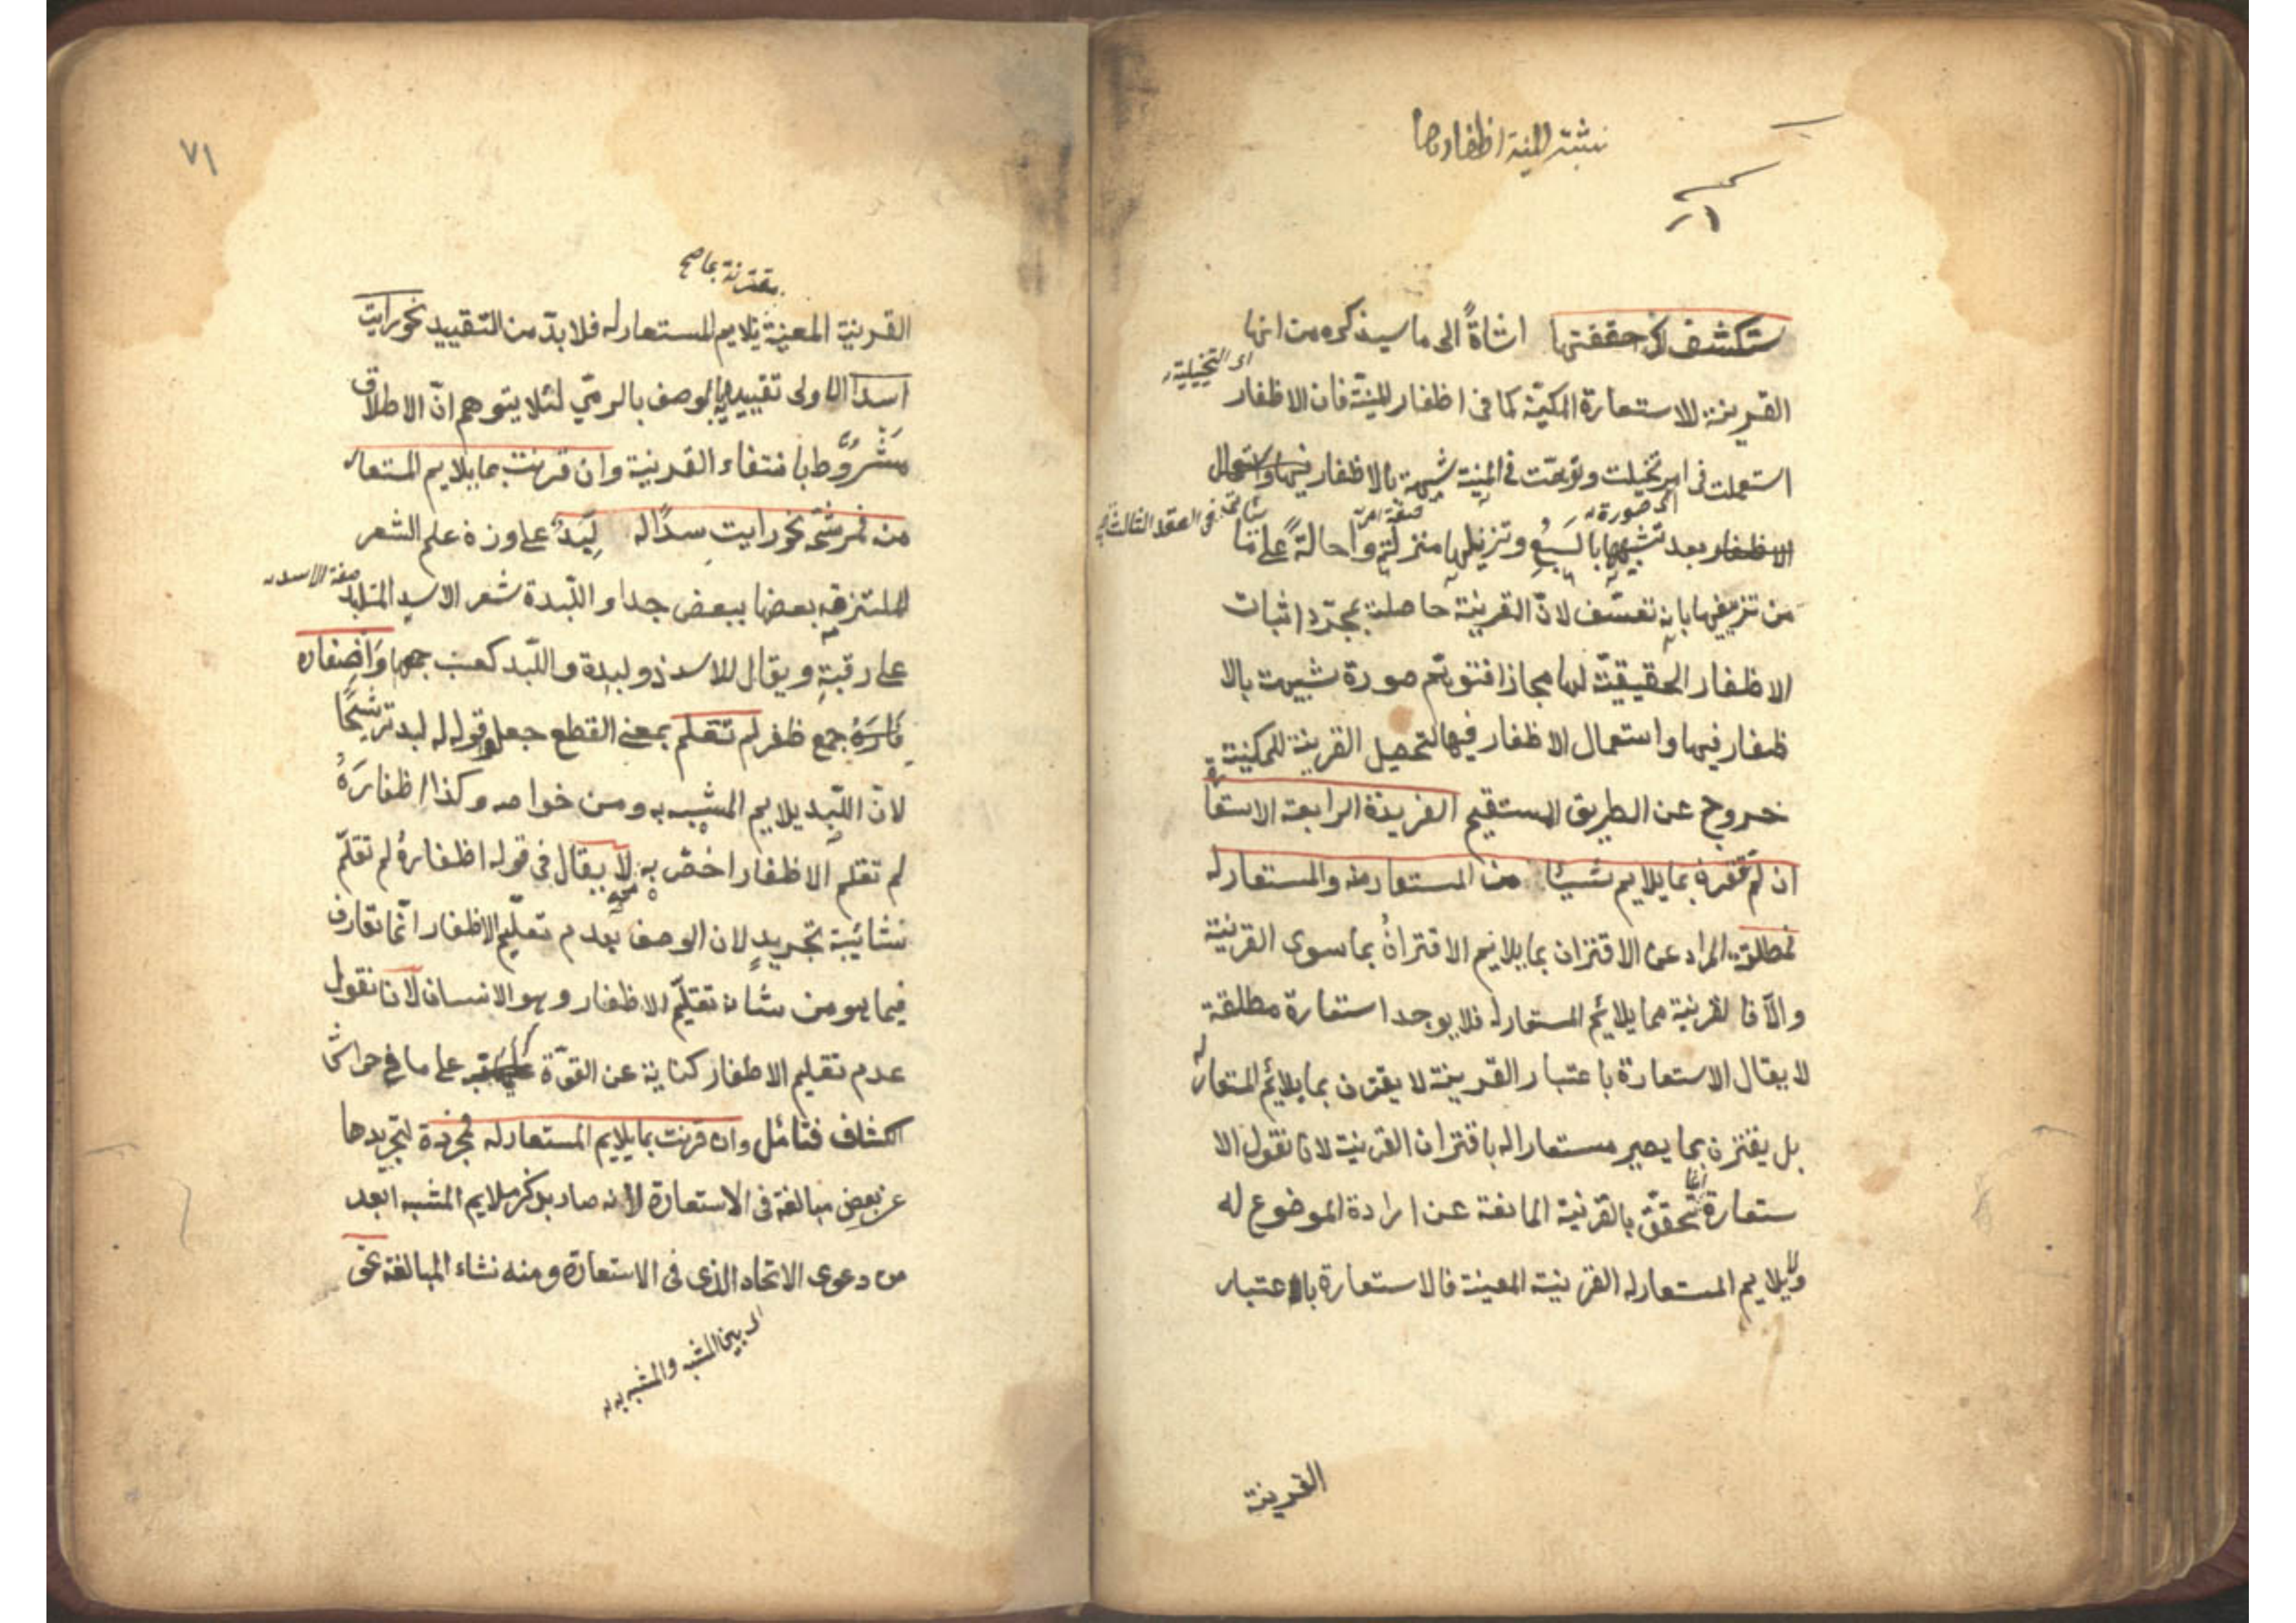 نشبت المنية اظفارها
ستكشف لك حقيقتها اشاةً الى ما سيذكره من انها
اى التخيلية
القرينة للاستعارة المكنية كما فى اظفار المنية فان الاظفار
استعملت فى امر تخيلت وتوهمت فى المنية شبيهة بالاظفار فيها واستعمال
اى صورة
صفة امر
فى العقد الثالث
الاظفار بعد تشبيهها بالسبع وتنزيلها منزلته واحالةً على
من تزييفها بانه تعسّف لانّ القرينة حاصلة بمجرّد اثبات
الاظفار الحقيقيّة لها مجازا فتوهّم صورة شبيهة بالا
ظفار فيها واستعمال الاظفار فيها لتحصيل القرينة للمكنية
خروج عن الطريق المستقيم الفريدة الرابعة الاستعارة
ان لم تقترن بما يلايم شيئا من المستعار منه والمستعار له
فمطلقة المراد عن الاقتران بما يلايم الاقتران بما سوى القرينة
والّا فالقرينة مما يلائم المستعار له فلا يوجد استعارة مطلقة
لا يقال الاستعارة باعتبار القرينة لا يقترن بما يلائم المستعار له
بل يقترن بما يصير مستعارا له باقتران القرينة لانا نقول الا
ستعارة انما تحقّق بالقرنية المانعة عن ارادة الموضوع له
ولا يلايم المستعار له القرينية المعينة فالاستعارة باعتبار
القرينة
٧١
مقترنة بما صح
القرنية المعينة يلايم المستعار له فلا بدّ من التقييد نحو رايت
اسدا الاولى تقييدها بالوصف بالرمي لئلا يتوهم انّ الاطلاق
مشروط بانتفاء القرنية وان قرنت بما يلايم المستعار
منه فمرشحة نحو رايت اسدًا له لِبَدٌ على وزن علم الشعر
المتلزقه بعضها ببعض جدا واللّبدة شعر الاسد المتلبد
صفة الاسد
على رقبته ويقال للاسد ذو لبدة واللّبد كعنب جمعها واظفاره
جمع ظفر لم تقلم بمعنى القطع جعل قوله له لبد ترشيحًا
لانّ اللّبد يلايم المشبه به ومن خواصه وكذا اظفارَهُ
لم تقلم الاظفار اخصّ به لا يقال فى قوله اظفارهُ لم تقلّم
شائبة تجريدٍ لان الوصف بعدم تقليم الاظفار انّما تعارف
فيما هو من شانه تقليم الاظفار وهو الانسان لانا نقول
عدم تقليم الاظفار كناية عن القوّة على ما فى حواشى
الكشاف فتامّل وان قرنت بما يلايم المستعار له فمجرّدة لتجريدها
عن بعض مبالغة فى الاستعارة لانه صار بذكر ملايم المشبه ابعد
من دعوى الاتحاد الذى فى الاستعارة ومنه نشاء المبالغة نحو
اى بين المشبه والمشبه به